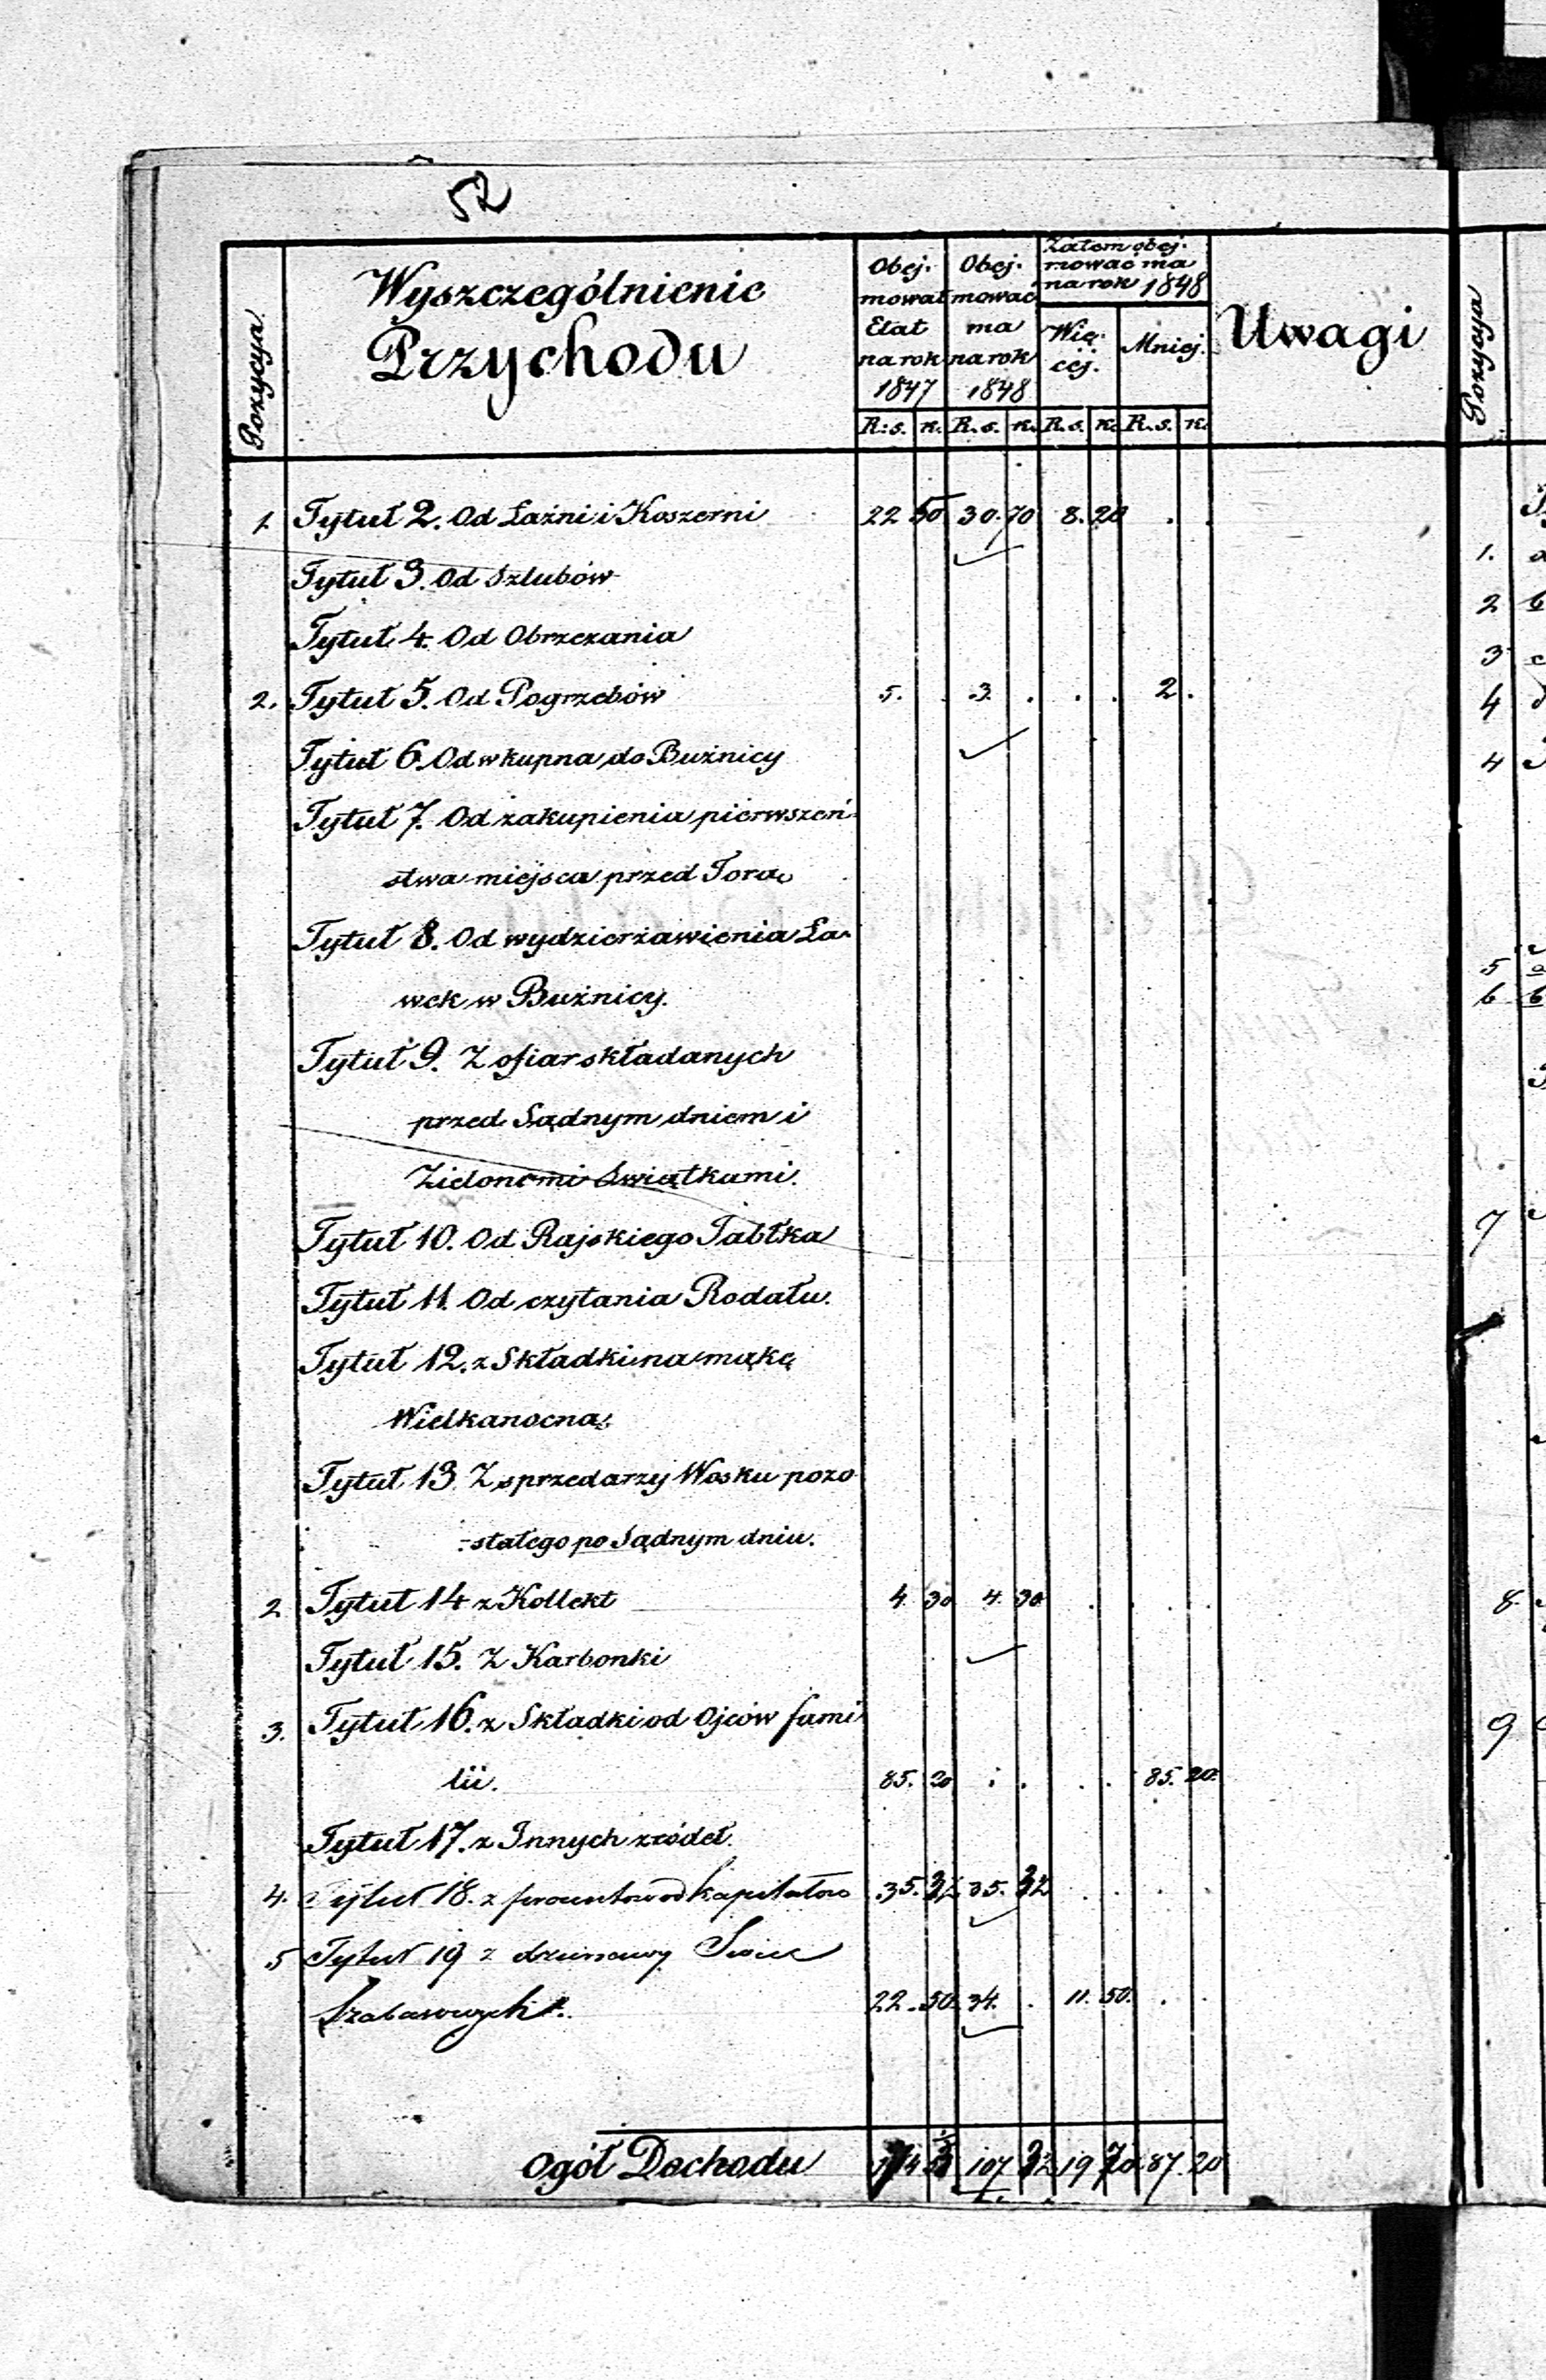 52
Pozycya
Wyszczególnienie
Przychodu
Obej-
mował
Etat
na rok
1847
Obej-
mować
ma
na rok
1848
Zatem obej-
mować ma
na rok 1848
Wię-
cej.
Mniej.
Uwagi
R: s. k. R. s. k. R. s. k. R. s. k.
1. Tytuł 2. Od Łaźni i Koszerni 22 50 30. 70 8. 20 . .
Tytuł 3. Od Szlubów
Tytuł 4. Od Obrzezania
2. Tytuł 5. Od Pogrzebów 5. . 3. . . . 2 .
Tytuł 6. Od wkupna do Bużnicy
Tytuł 7. Od zakupienia pierwszeń-
stwa miejsca przed Torą
Tytuł 8. Od wydzierżawienia Ła-
wek w Bużnicy.
Tytuł 9. Z ofiar składanych
przed Sądnym dniem i
Zielonemi Swiątkami.
Tytuł 10. Od Rajskiego Jabłka
Tytuł 11. Od czytania Rodału.
Tytuł 12. z Składki na mąkę
Wielkanocną.
Tytuł 13. Z sprzedarzy Wosku pozo
-stałego po Sądnym dniu.
2 Tytuł 14 z Kollekt 4. 30 4. 30 . . . .
Tytuł 15. Z Karbonki
3. Tytuł 16. z Składki od Ojców fami
lii. 85. 20 . . . . 85. 20.
Tytuł 17. z Innych zródeł.
4. Tytuł 18. z procentów od kapitałów 35. 32 35. 32 . . . .
5 Tytuł 19 z Swiec
Szabasowych. 22. 50. 34. . 11. 50. . .
Ogół Dochodu 107 32 19 70 87. 20
Pozycya
1.
2
3
4
4
5
6
7
8
9